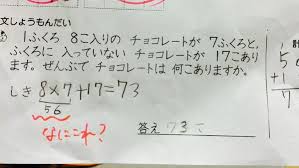 文しょうもんだい
1ふくろ 8こ入りの チョコレートが 7ふくろと,
ふくろに 入っていない チョコレートが 17こあり
ます。ぜんぶで チョコレートは 何こありますか。
しき 8×7+17=73
56
なにこれ?
答え 73こ
5
+1